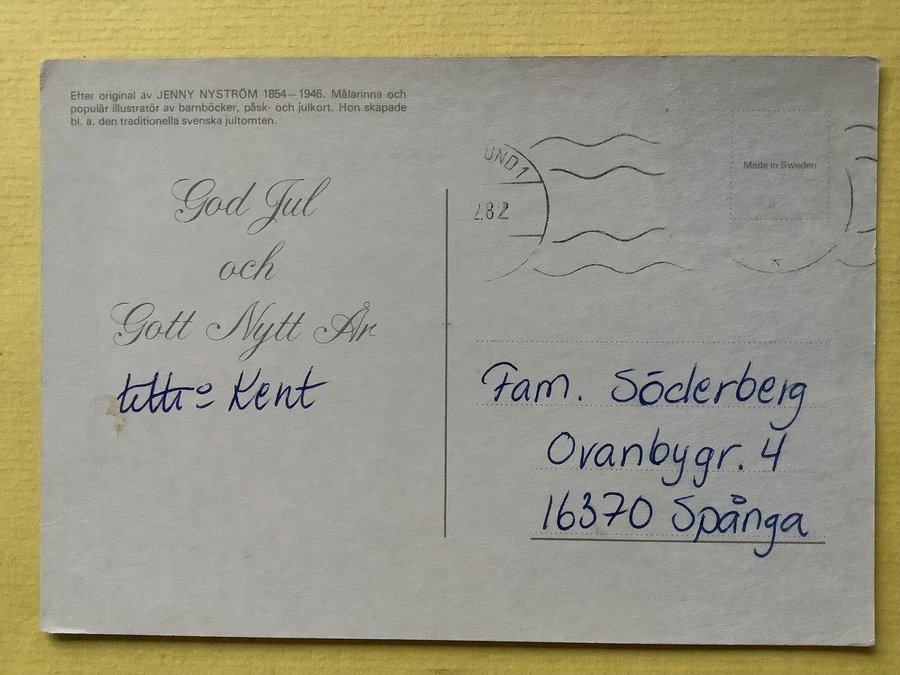 Efter original av JENNY NYSTRÖM 1854–1946. Målarinna och
populär illustratör av barnböcker, påsk- och julkort. Hon skapade
bl. a. den traditionella svenska jultomten.
God Jul
och
Gott Nytt År
Kent
UND 1
Made in Sweden
Fam. Söderberg
Ovanbygr. 4
16370 Spånga